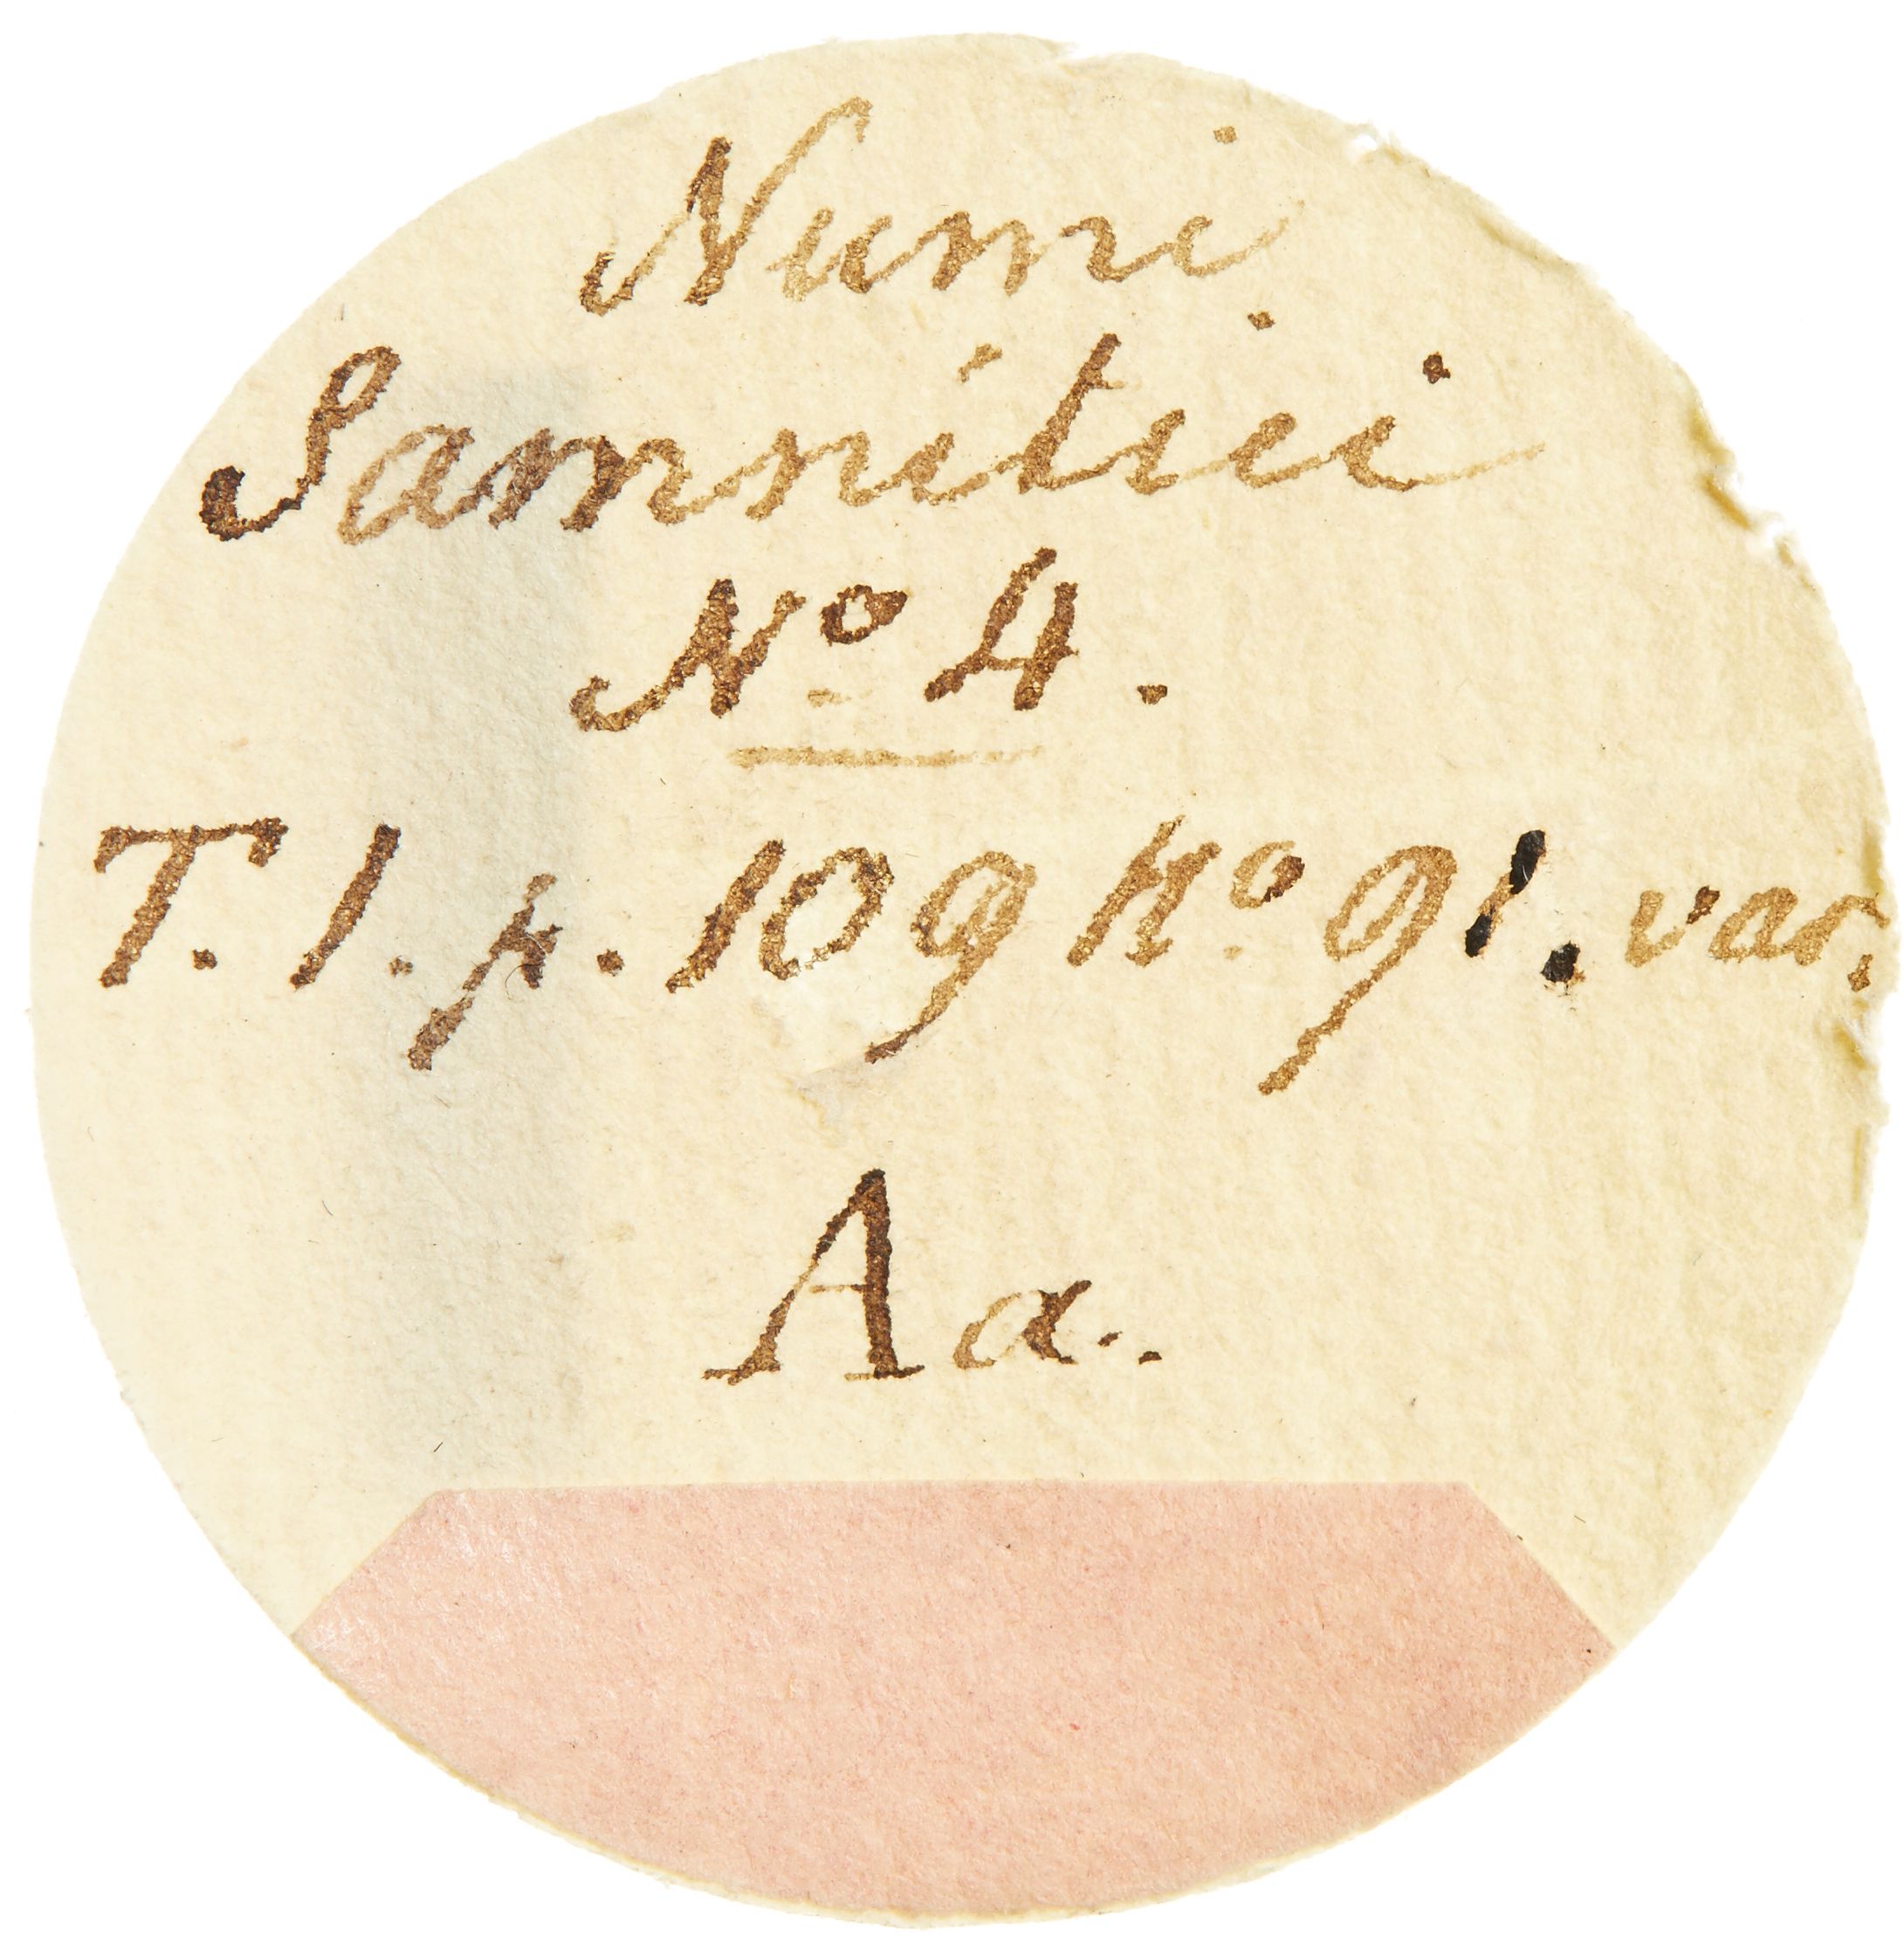 Numi
Samnitici
Nº 4.
T. 1. p. 109 Nº 91. var.
Aa..